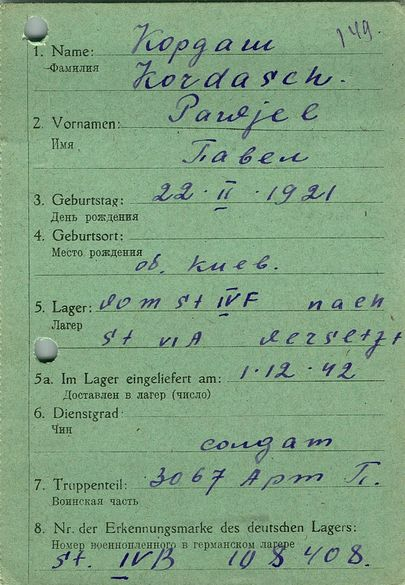 149.
1. Name: Кордаш
Фамилия Kordasch.
2. Vornamen: Pawjel
Имя Павел
3. Geburtstag: 22·II·1921
День рождения
4. Geburtsort:
Место рождения об. Киев.
5. Lager: vom St IV F nach
Лагер St VI A versetzt
5a. Im Lager eingeliefert am: 1·12·42
Доставлен в лагер (число)
6. Dienstgrad:
Чин солдат
7. Truppenteil: 3067 Арт П.
Воинская часть
8. Nr. der Erkennungsmarke des deutschen Lagers:
Номер военнопленного в германском лагере
St. IV B 108408.